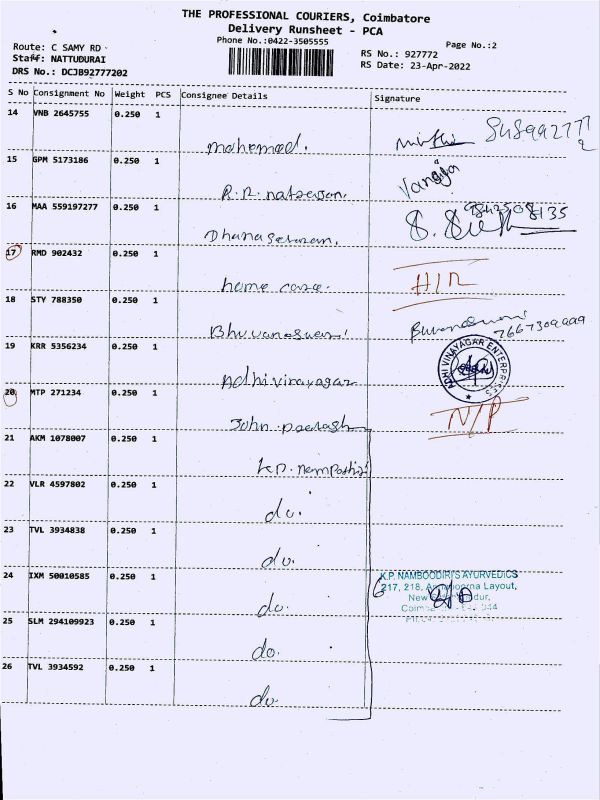 THE PROFESSIONAL COURIERS, Coimbatore
Delivery Runsheet - PCA
Phone No.:0422-3505555
Page No.:2
Route: C SAMY RD
Staff: NATTUDURAI
DRS No.: DCJB92777202
RS No.: 927772
RS Date: 23-Apr-2022
S No Consignment No Weight PCS Consignee Details Signature
14 VNB 2645755 0.250 1
mohamed. 8489927772
15 GPM 5173186 0.250 1
R.R. natrajan. Vangija
16 MAA 559197277 0.250 1
Dhanasekaran. 9842508135
17 RMD 902432 0.250 1
home care. H/R
18 STY 788350 0.250 1
Bhuvaneswari 7667309999
19 KRR 5356234 0.250 1
Adhivinayagar ADHI VINAYAGAR ENTERPRISES
20 MTP 271234 0.250 1
John N/P
21 AKM 1078007 0.250 1
k.p.
22 VLR 4597802 0.250 1
do.
23 TVL 3934838 0.250 1
do.
24 IXM 50010585 0.250 1
do. 6 K.P. NAMBOODIRI'S AYURVEDICS
217, 218, Layout,
New
25 SLM 294109923 0.250 1
do.
26 TVL 3934592 0.250 1
do.